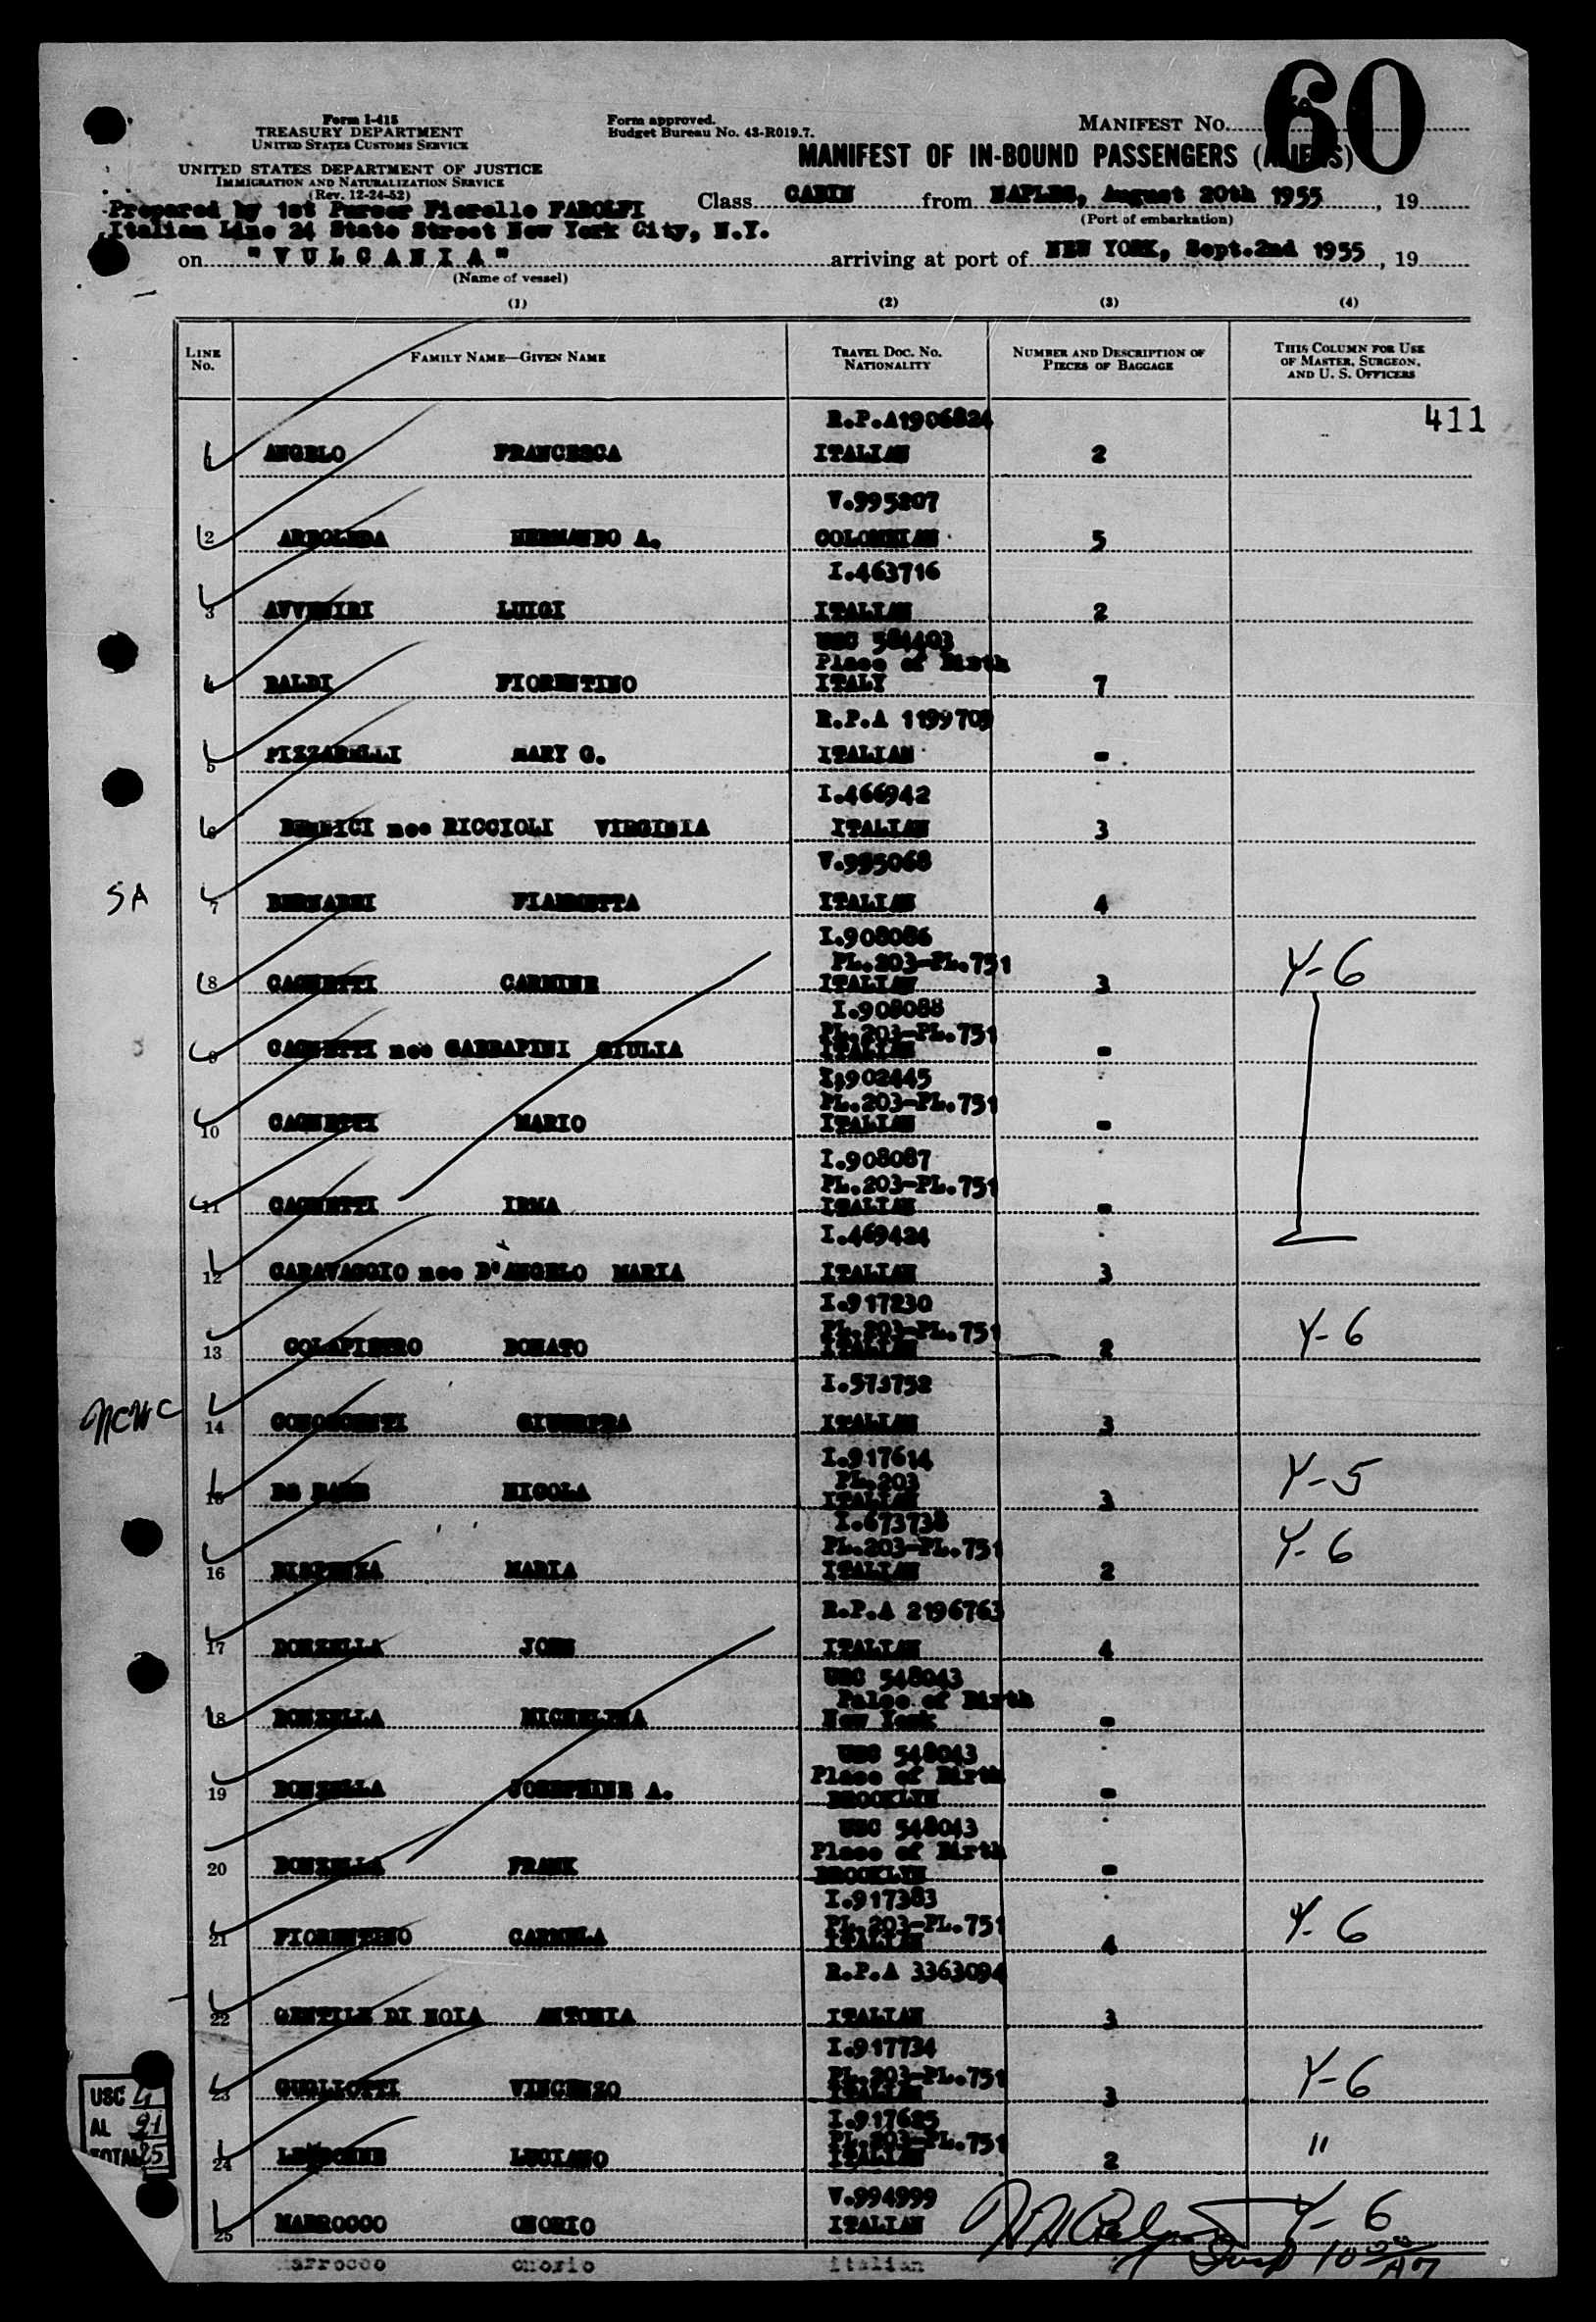 60
Form I-415
TREASURY DEPARTMENT
UNITED STATES CUSTOMS SERVICE
Form approved.
Budget Bureau No. 43-R019.7.
MANIFEST NO.
UNITED STATES DEPARTMENT OF JUSTICE
IMMIGRATION AND NATURALIZATION SERVICE
(Rev. 12-24-52)
MANIFEST OF IN-BOUND PASSENGERS (ALIENS)
Prepared by 1st Purser Fiorello FABOLFI
Italian Line 24 State Street New York City, N.Y.
Class CABIN from NAPLES, August 20th 1955, 19
(Port of embarkation)
on "VULCANIA" arriving at port of NEW YORK, Sept.2nd 1955, 19
(Name of vessel)
(1) (2) (3) (4)
LINE No. FAMILY NAME—GIVEN NAME TRAVEL DOC. NO. NATIONALITY NUMBER AND DESCRIPTION OF PIECES OF BAGGAGE THIS COLUMN FOR USE OF MASTER, SURGEON, AND U. S. OFFICERS
411
R.P.A1906824
1 ANGELO FRANCESCA ITALIAN 2
V.995207
2 ARBOLEDA HERMANDO A. COLOMBIAN 5
I.463716
3 AVVENIRI LUIGI ITALIAN 2
USC 584403
Place of Birth
4 BALDI FIORENTINO ITALY 7
R.P.A 1199709
5 PIZZARELLI MARY G. ITALIAN -
I.466942
6 nee RICCIOLI VIRGINIA ITALIAN 3
V.995068
SA 7 FIAMMETTA ITALIAN 4
I.908086
PL.203-PL.751
8 CAGNETTI CARMINE ITALIAN 3 Y-6
I.908088
PL.203-PL.751
9 CAGNETTI nee GIULIA ITALIAN -
I.902445
PL.203-PL.751
10 CAGNETTI MARIO ITALIAN -
I.908087
PL.203-PL.751
11 CAGNETTI IRMA ITALIAN -
I.469424
12 CARAVAGGIO nee D'ANGELO MARIA ITALIAN 3
I.917230
PL.203-PL.751
13 COLAPIETRO DONATO ITALIAN 2 Y-6
I.573752
NCWC 14 CONOSCENTI GIUSEPPA ITALIAN 3
I.917614
PL.203
15 NICOLA ITALIAN 3 Y-5
I.673738
PL.203-PL.751
16 DISPENZA MARIA ITALIAN 2 Y-6
R.P.A 2196763
17 DONZELLA JOHN ITALIAN 4
USC 548043
Palce of Birth
18 DONZELLA MICHELINA New York -
USC 548043
Place of Birth
19 DONZELLA JOSEPHINE A. BROOKLYN -
USC 548043
Place of Birth
20 DONZELLA FRANK BROOKLYN -
I.917383
PL.203-PL.751
21 FIORENTINO CARMELA ITALIAN 4 Y-6
R.P.A 3363094
22 GENTILE DI NOIA ANTONIA ITALIAN 3
I.917734
PL.203-PL.751
23 GUGLIOTTI VINCENZO ITALIAN 3 Y-6
I.917685
PL.203-PL.751
24 LUCIANO ITALIAN 2 "
V.994999
25 MARROCCO ONORIO ITALIAN Y-6
Marrocco onorio italian
USC 4
AL 21
TOTAL 25